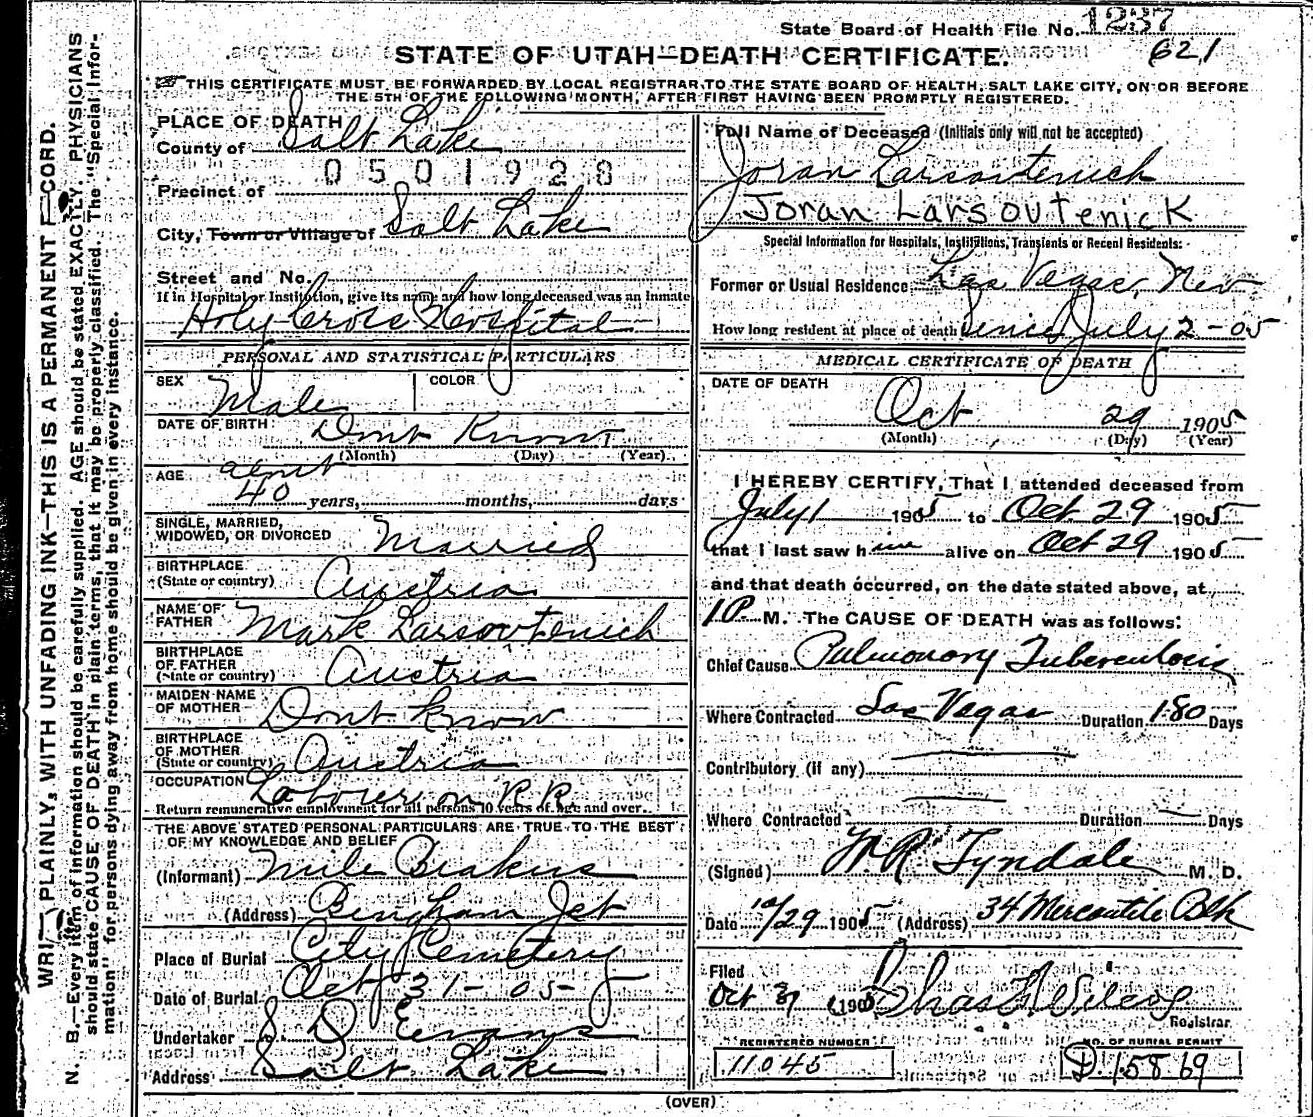 State Board of Health File No. 1237
621
STATE OF UTAH—DEATH CERTIFICATE.
THIS CERTIFICATE MUST BE FORWARDED BY LOCAL REGISTRAR TO THE STATE BOARD OF HEALTH, SALT LAKE CITY, ON OR BEFORE
THE 5TH OF THE FOLLOWING MONTH, AFTER FIRST HAVING BEEN PROMPTLY REGISTERED.
WRITE PLAINLY, WITH UNFADING INK—THIS IS A PERMANENT RECORD.
N. B.—Every item of information should be carefully supplied. AGE should be stated EXACTLY. PHYSICIANS
should state CAUSE OF DEATH in plain terms, that it may be properly classified. The "Special Infor-
mation" for persons dying away from home should be given in every instance.
PLACE OF DEATH
County of Salt Lake
0501928
Precinct of
City, Town or Village of Salt Lake
Street and No.
If in Hospital or Institution, give its name and how long deceased was an Inmate
Holy Cross Hospital
PERSONAL AND STATISTICAL PARTICULARS
SEX Male COLOR
DATE OF BIRTH Dont Know
(Month) (Day) (Year)
AGE about
40 years, months, days
SINGLE, MARRIED,
WIDOWED, OR DIVORCED Married
BIRTHPLACE
(State or country) Austria
NAME OF
FATHER Mark Larsovtenich
BIRTHPLACE
OF FATHER
(State or country) Austria
MAIDEN NAME
OF MOTHER Dont know
BIRTHPLACE
OF MOTHER
(State or country) Austria
OCCUPATION Laborer on R R
Return remunerative employment for all persons 10 years of Age and over.
THE ABOVE STATED PERSONAL PARTICULARS ARE TRUE TO THE BEST
OF MY KNOWLEDGE AND BELIEF
(Informant) Mile
(Address) Bingham Jct
Place of Burial City Cemetery
Date of Burial Oct 31-05
Undertaker S. D. Evans
Address Salt Lake
Full Name of Deceased (Initials only will not be accepted)
Joran Larsovtenich
Joran Larsovtenick
Special Information for Hospitals, Institutions, Transients or Recent Residents:
Former or Usual Residence Las Vegas, Nev
How long resident at place of death Since July 2-05
MEDICAL CERTIFICATE OF DEATH
DATE OF DEATH
Oct 29 1905
(Month) (Day) (Year)
I HEREBY CERTIFY, That I attended deceased from
July 1 1905 to Oct. 29 1905
that I last saw him alive on Oct 29 1905
and that death occurred, on the date stated above, at
1 P. M. The CAUSE OF DEATH was as follows:
Chief Cause Pulmonary Tuberculosis
Where Contracted Las Vegas Duration 180 Days
Contributory (if any)
Where Contracted Duration Days
(Signed) W. R. Tyndale M. D.
Date 10/29 1905 (Address) 34 Mercantile Blk
Filed
Oct 31 1905 Chas Wilcox
Registrar
REGISTERED NUMBER NO. OF BURIAL PERMIT
11045 D. 15869
(OVER)